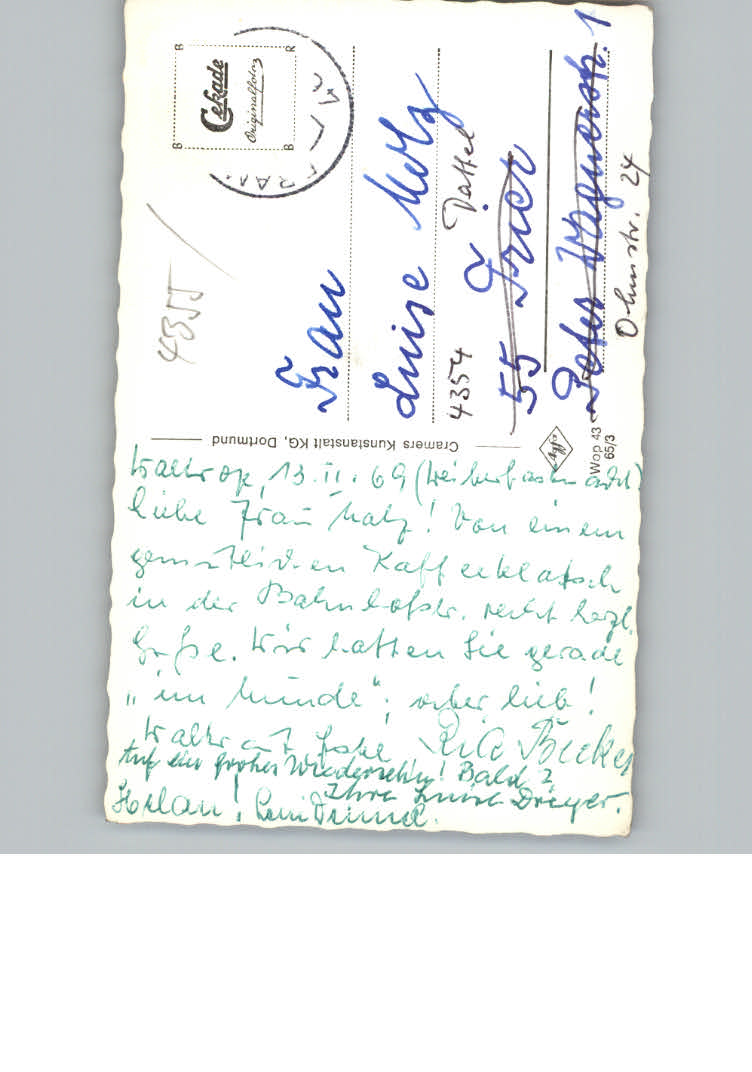 B R
Cekade
Originalfoto
B B
4355
Frau
Luise Motz
4354 Dattel
55 Trier
Peter Wagnerstr. 1
Ohmstr. 24
Cramers Kunstanstalt KG, Dortmund
Agfa
Wop 43
65/3
Waltrop, 13. II. 69 (Weiberfastnacht)
Liebe Frau Motz! Von einem
gemütlichen Kaffeeklatsch
in der Bahnhofstr. recht herzl.
Grüße. Wir hatten Sie gerade
„im Munde“, aber lieb!
Becker
Auf ein frohes Wiedersehn! Bald?
Ihre Luise Dreyer.
Helau!